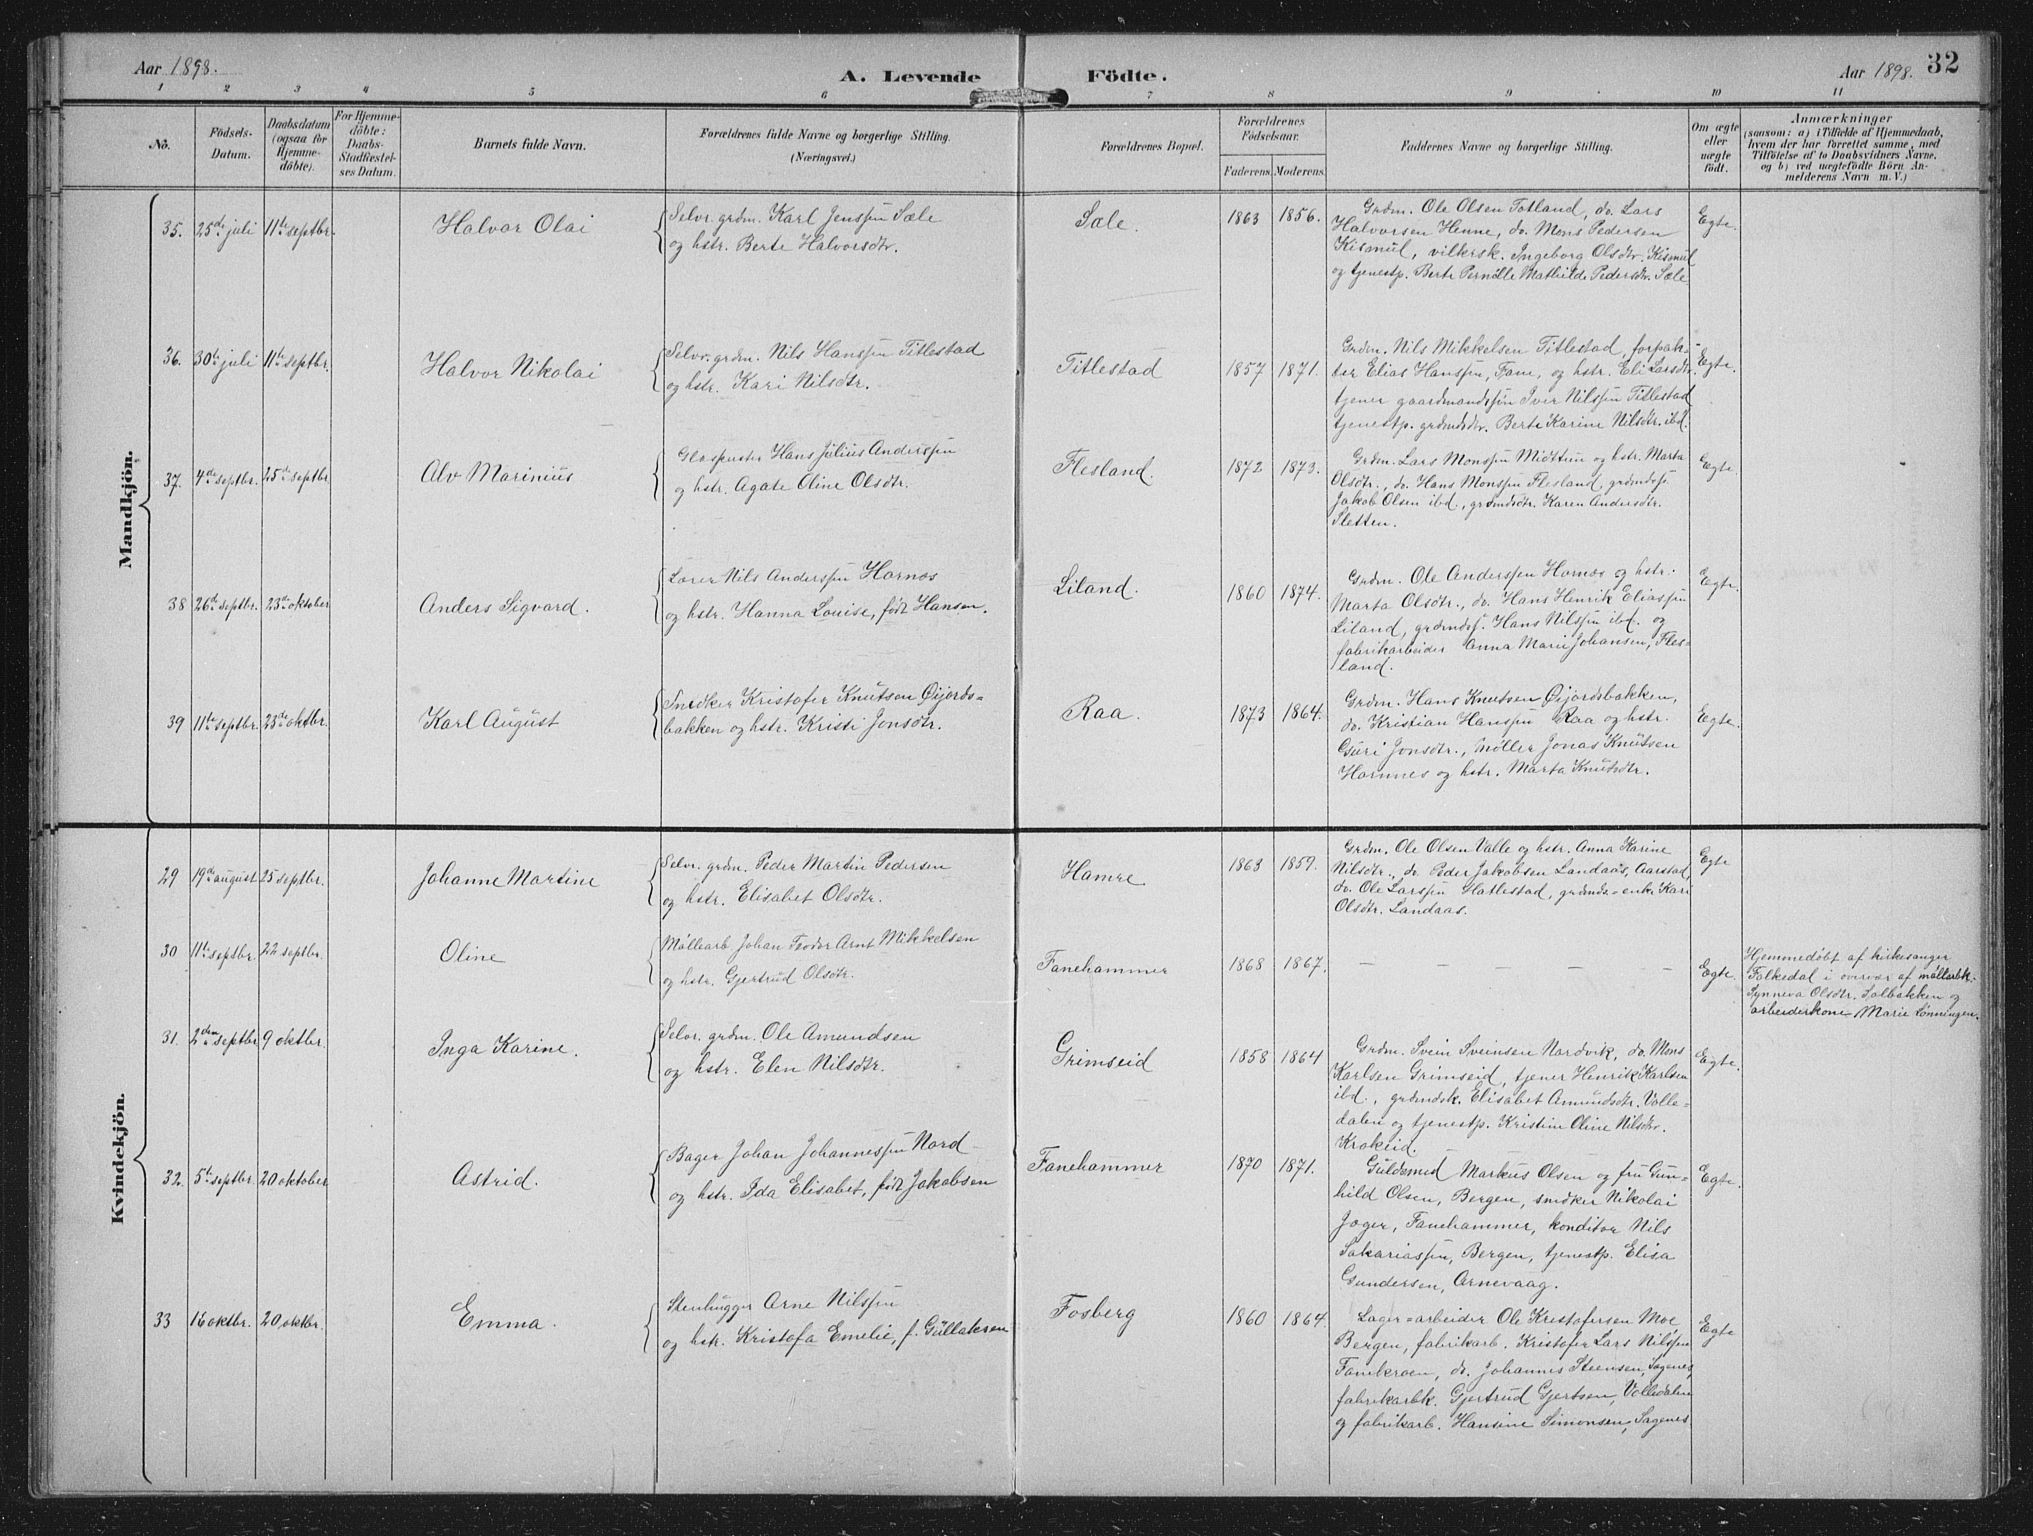 Aar 1898.
A. Levende Födte.
Aar 1898. 32
1 2 3 4 5 6 7 8 9 10 11
No.
Födsels-
Datum.
Daabsdatum
(ogsaa for
Hjemme-
döbte).
For Hjemme-
döbte:
Daabs-
Stadfæstel-
ses Datum.
Barnets fulde Navn.
Forældrenes fulde Navne og borgerlige Stilling.
(Næringsvei.)
Forældrenes Bopæl.
Forældrenes
Födselsaar.
Faderens. Moderens.
Faddernes Navne og borgerlige Stilling.
Om ægte
eller
uægte
födt.
Anmærkninger
(saasom: a) i Tilfælde af Hjemmedaab,
hvem der har forrettet samme, med
Tilföielse af to Daabsvidners Navne,
og b) ved uægtefödte Börn An-
melderens Navn m. V.)
Mandkjön.
35. 25de juli 11te septbr.
Halvor Olai
Selvr. grdm. Karl Jenssen Sæle
og hstr. Berte Halvorsdtr.
Sæle.
1863 1856.
Grdm. Ole Olsen Totland, do. Lars
Halvorsen Henne, do. Mons Pedersen
Kismul, vilkersk. Ingeborg Olsdtr. Kismul
og tjenestp. Berte Pernille Mathilde Pedersdtr. Sæle
Egte.
36. 30te juli 11te septbr.
Halvor Nikolai
Selvr. grdm. Nils Hanssen Titlestad
og hstr. Kari Nilsdtr.
Titlestad
1857 1871.
Grdm. Nils Mikkelsen Titlestad, forpak-
ter Elias Hanssen, Fane, og hstr. Eli Larsdtr.
tjener gaardmandssøn Iver Nilssen Titlestad
tjenestp. grdmdsdtr. Berte Karine Nilsdtr. ibd.
Egte.
37. 4de septbr. 25de septbr.
Alv Marinius
Glaspuster Hans Julius Anderssen
og hstr. Agate Oline Olsdtr.
Flesland.
1872 1873.
Grdm. Lars Monssen Midttun og hstr. Marta
Olsdtr., do. Hans Monssen Flesland, grdmdss.
Jakob Olsen ibd., grdmdsdtr. Karen Andersdtr.
Sletten.
Egte.
38 26de septbr. 23de oktober
Anders Sigvard.
Lærer Nils Anderssen Hornæs
og hstr. Hanna Louise, født Hansen.
Liland.
1860 1874.
Grdm. Ole Anderssen Hornæs og hstr.
Marta Olsdtr., do. Hans Henrik Eliassen
Liland, grdmdss. Hans Nilssen ibd. og
fabrikarbeider Anna Marie Johansen, Fles-
land.
Egte.
39 11te septbr. 23de oktbr.
Karl August
Snedker Kristofer Knutsen Øijords-
bakken og hstr. Kristi Jonsdtr.
Raa.
1873 1864.
Grdm. Hans Knutsen Øijordsbakken,
do. Kristian Hanssen Raa og hstr.
Guri Jonsdtr., møller Jonas Knutsen
Hamnes og hstr. Marta Knutsdtr.
Egte.
Kvindekjön.
29 19de august 25 septbr.
Johanne Martine
Selvr. grdm. Peder Martin Pedersen
og hstr. Elisabet Olsdtr.
Hamre
1863 1859.
Grdm. Ole Olsen Valle og hstr. Anna Karine
Nilsdtr., do. Peder Jakobsen Landaas, Aarstad,
do. Ole Larssen Hatlestad, grdmds-enke Kari
Olsdtr. Landaas.
Egte
30 11te septbr. 22 septbr.
Oline
Møllearb Johan Teodor Arnt Mikkelsen
og hstr. Gjertrud Olsdtr.
Fanehammer
1868 1867.
— — — —
Egte.
Hjemmedøbt af kirkesanger
Falkedal i overvær af møllarbk.
Synneva Olsdtr. Solbakken og
arbeiderkone Marie Lønningen.
31. 2den septbr 9 oktbr.
Inga Karine.
Selvr. grdm. Ole Amundsen
og hstr. Elen Nilsdtr.
Grimseid
1858 1864
Grdm. Svein Sveinsen Nordvik, do. Mons
Karlsen Grimseid, tjener Henrik Karlsen
ibd., grdmdsk. Elisabet Amundsdtr. Valle-
dalen og tjenestp. Kristine Oline Nilsdtr.
Krokeid.
Egte.
32. 5te septbr. 20 oktober
Astrid.
Bager Johan Johannessen Nord
og hstr. Ida Elisabet, født Jakobsen
Fanehammer
1870 1871.
Guldsmed Markus Olsen og fru Gun-
hild Olsen, Bergen, snedker Nikolai
Jæger, Fanehammer, konditor Nils
Sakariassen, Bergen, tjenestp. Elisa
Gundersen, Arnevaag.
Egte.
33 16 oktbr. 20 oktbr.
Emma.
Stenhugger Arne Nilssen
og hstr. Kristofa Emelie, f. Gullaksen
Fosberg
1860 1864.
Lager-arbeider Ole Kristofersen Moe
Bergen, fabrikarb. Kristofer Lars Nilssen
Fanekroen, do. Johannes Steensen, Sagenes,
fabrikarbk. Gjertrud Gjertsen, Valledalen
og fabrikarb. Hansine Simonsen, Sagenes
Egte